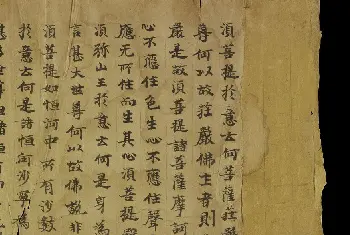 須菩提於意云何菩薩莊
尊何以故莊嚴佛土者則
嚴是故須菩提諸菩薩摩訶
心不應住色生心不應住聲
應无所住而生其心須菩提
須弥山王於意云何是身為
言甚大世尊何以故佛說非
須菩提如恒河中所有沙數
於意云何是諸恒河沙寧為